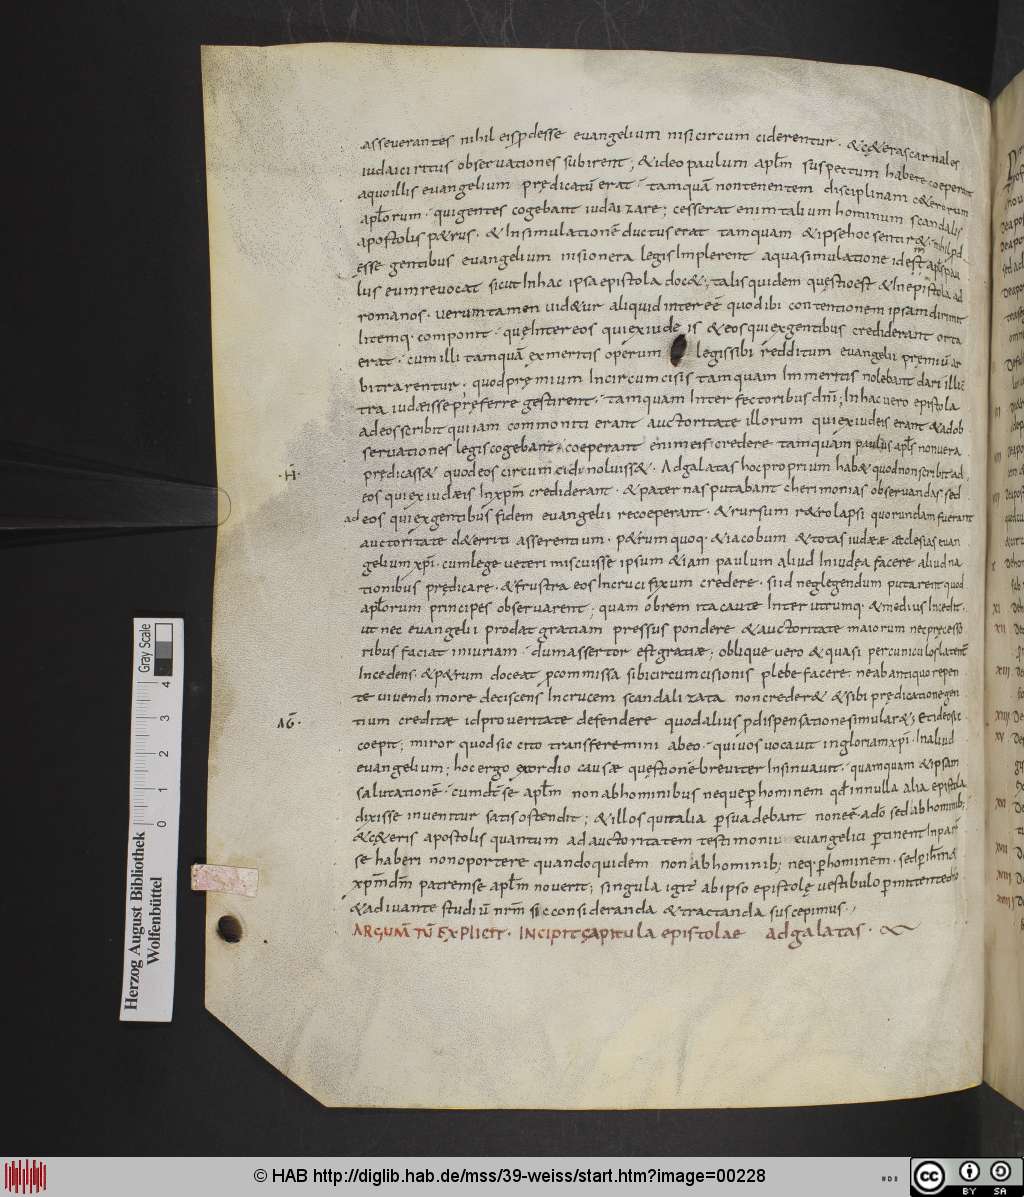 asseverantes nihil eis pdesse evangelium nisi circum ciderentur · & c&eras carnales
iudaici ritus observationes subirent; & ideo paulum aplm suspectum habere coeperant
a quo illis evangelium prędicatū erat · tamquā non tenentem disciplinam c&erorum
aplorum · qui gentes cogebant iudaizare; cesserat enim talium hominum scandalis
apostolis p&rus · & In simulationē ductus erat tamquam & ipse hoc sentir& · nihil pd
esse gentibus evangelium nisi onera legis Implerent a qua simulatione idest apls pau
lus eum revocat sicut In hac ipsa epistola doc&; talis quidem quęstio est & In epistola ad
romanos · verum tamen uid&ur aliquid inter eē quod ibi contentionem ipsam dirimit
litemq· componit · quę Inter eos qui ex iudeis & eos qui ex gentibus crediderant orta
erat · cum illi tamquā ex meritis operum legis sibi redditum evangelii pręmiū ar
bitrarentur · quod pręmium In circumcisis tamquam Immeritis nolebant dari illi c̄
tra iudæis se pręferre gestirent · tamquam Inter fectoribus dn̄i; In hac uero epistola
ad eos scribit qui iam commoniti erant auctoritate illorum qui ex iudeis erant & ad ob
servationes legis cogebant · coeperant enim eis credere tamquam paulus apls non vera
prędicass& quod eos circum cidi noluiss& · Ad galatas hoc proprium hab& quod non scribit ad
·H̄·
eos qui ex iudæis In xpm̄ crediderant · & paternas putabant cherimonias observandas sed
ad eos qui ex gentibus fidem evangelii recoeperant · & rursum r&rolapsi quorundam fuerant
auctoritate d&erriti asserentium · p&rum quoq· & iacobum & totas iudææ æclesias euan
gelium xpi · cum lege veteri miscuisse ipsum & iam paulum aliud In iudęa facere aliud na
tionibus prędicare · & frustra eos In crucifixum credere · si id neglegendum putarent quod
aplorum principes observarent; quam obrem ita caute Inter utrumq· & medius Incedit ·
ut nec evangelii prodat gratiam pressus pondere & auctoritate maiorum nec pręcesso
ribus faciat iniuriam · dum assertor est gratiæ; oblique vero & quasi per cuniculos latenter
Incedens · & p&rum doceat p commissa sibi circumcisionis plebe facere · ne ab antiquo repen
te vivendi more desciscens In crucem scandalizata non creder& & sibi prędicatione gen
tium creditæ id pro veritate defendere quod alius p dispensatione simular&; Et ideo sic
ΛḠ·
coepit; miror quod sic cito transferemini a beo · qui vos vocavit in gloriam xpi · In aliud
evangelium; hoc ergo exordio causæ quęstionē breviter Insinuavit · quamquam & ipsam
salutationē · cum dt̄ se aplm non ab hominibus neque p hominem qd̄ in nulla alia epistola
dixisse invenitur satis ostendit; & illos qui talia p suadebant non eē a dō sed ab hominib;
& c&eris apostolis quantum ad auctoritatem testimonii evangelici p tinent In pare
se haberi non oportere quando quidem non ab hominib; neq· p hominem · sed p ih̄m
xpm dm̄ patrem se aplm noverit; singula igit̄ ab ipso epistolę vestibulo p mittente dō
& adiuvante studiū nrm̄ sic consideranda & tractanda suscepimus ·
ARGUMTŪ EXPLICIT · INCIPIT capitula epistolae ad galatas ·
Herzog August Bibliothek
Wolfenbüttel
0 1 2 3 4
Gray Scale
© HAB http://diglib.hab.de/mss/39-weiss/start.htm?image=00228
cc BY SA